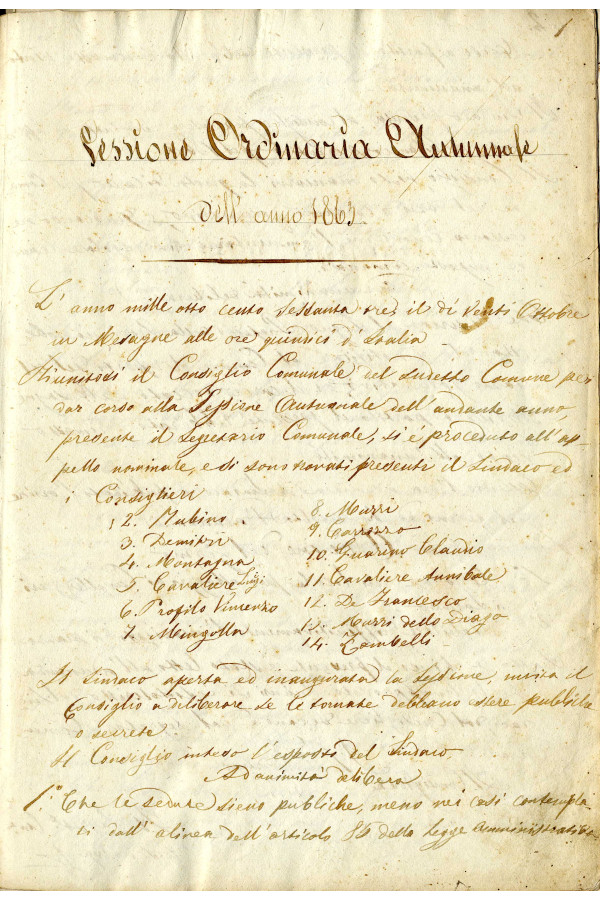 1
Sessione Ordinaria Autunnale
dell'anno 1863
L'anno mille otto cento sessanta tre, il dì venti Ottobre
in Mesagne alle ore quindici d'Italia
Riunitosi il Consiglio Comunale del sudetto Comune per
dar corso alla Sessione Autunnale dell'andante anno,
presente il Segretario Comunale, si è proceduto all'ap
pello nominale, e si sono trovati presenti il Sindaco ed
i Consiglieri
2. Rubino
3. Demitri
4. Montagna
5. Cavaliere Luigi
6. Profilo Vincenzo
7. Mingolla
8. Murri
9. Carrozzo
10. Guarino Claudio
11. Cavaliere Annibale
12. De Francesco
13. Murri dello Diago
14. Zambelli
Il Sindaco aperta ed inaugurata la Sessione, invita il
Consiglio a diliberare se le tornate debbano essere publiche
o secrete
Il Consiglio inteso l'esposto del Sindaco,
Ad unimità delibera
1.° Che le sedute sieno publiche, meno nei casi contempla
ti dall'alinea dell'articolo 85 della legge amministrativa